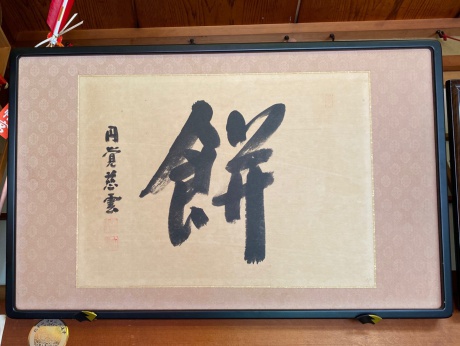 餅
円覚慈雲